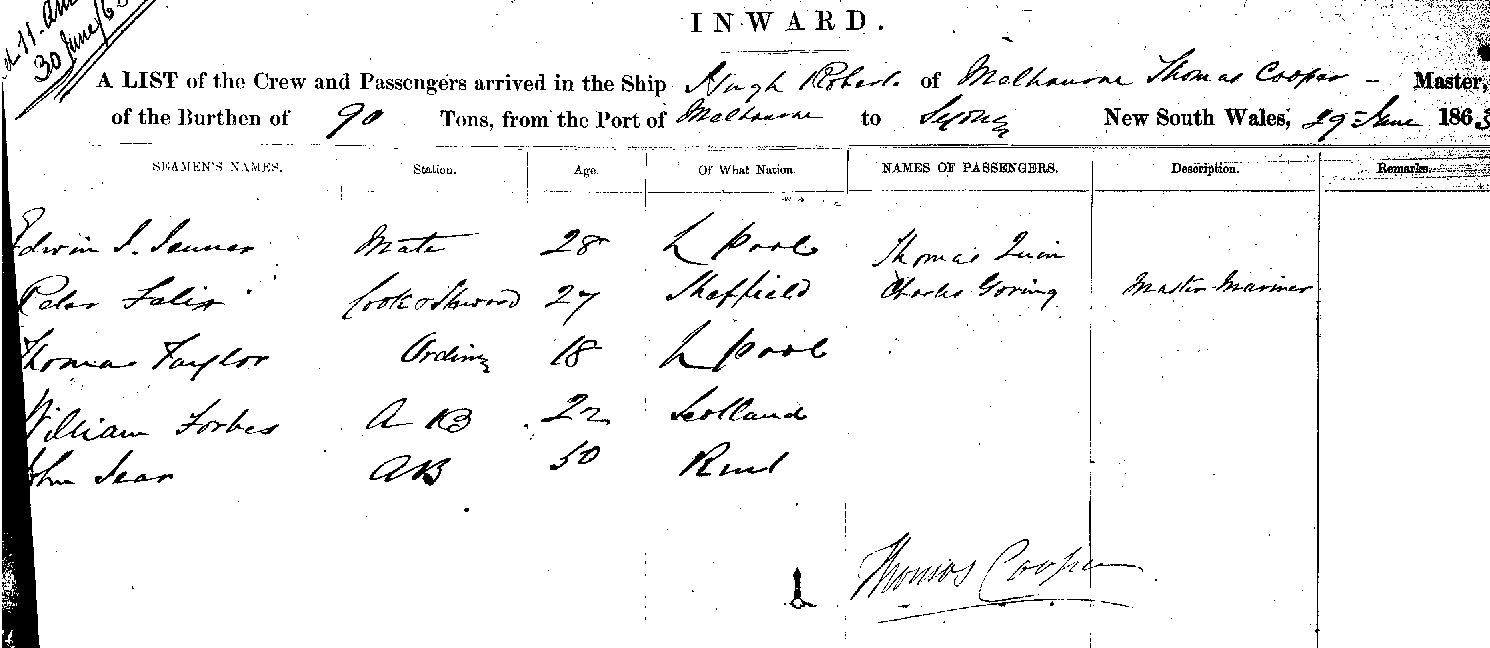 30 June/63
INWARD.
A LIST of the Crew and Passengers arrived in the Ship Hugh Roberts of Melbourne Thomas Cooper – Master,
of the Burthen of 90 Tons, from the Port of Melbourne to Sydney New South Wales, 29 June 1863
SEAMEN'S NAMES. Station. Age. Of What Nation. NAMES OF PASSENGERS. Description. Remarks.
Edwin Mate 28 L pool Thomas Quin
Peter Cook & Steward 27 Sheffield Charles Goring Master Mariner
Thomas Taylor Ordiny 18 L pool
William Forbes A B 22 Scotland
John AB 50
Thomas Cooper